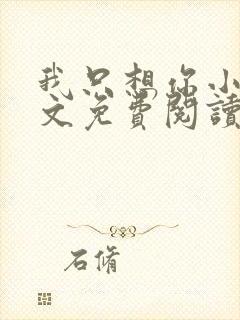 我只想你小
文免費閱讀
石脩